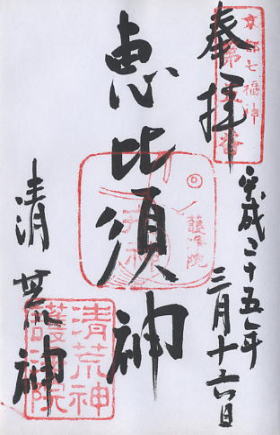 京都七福神
奉拝
平成二十五年
三月十六日
恵比須神
護浄院
清荒神
清荒神
護浄院